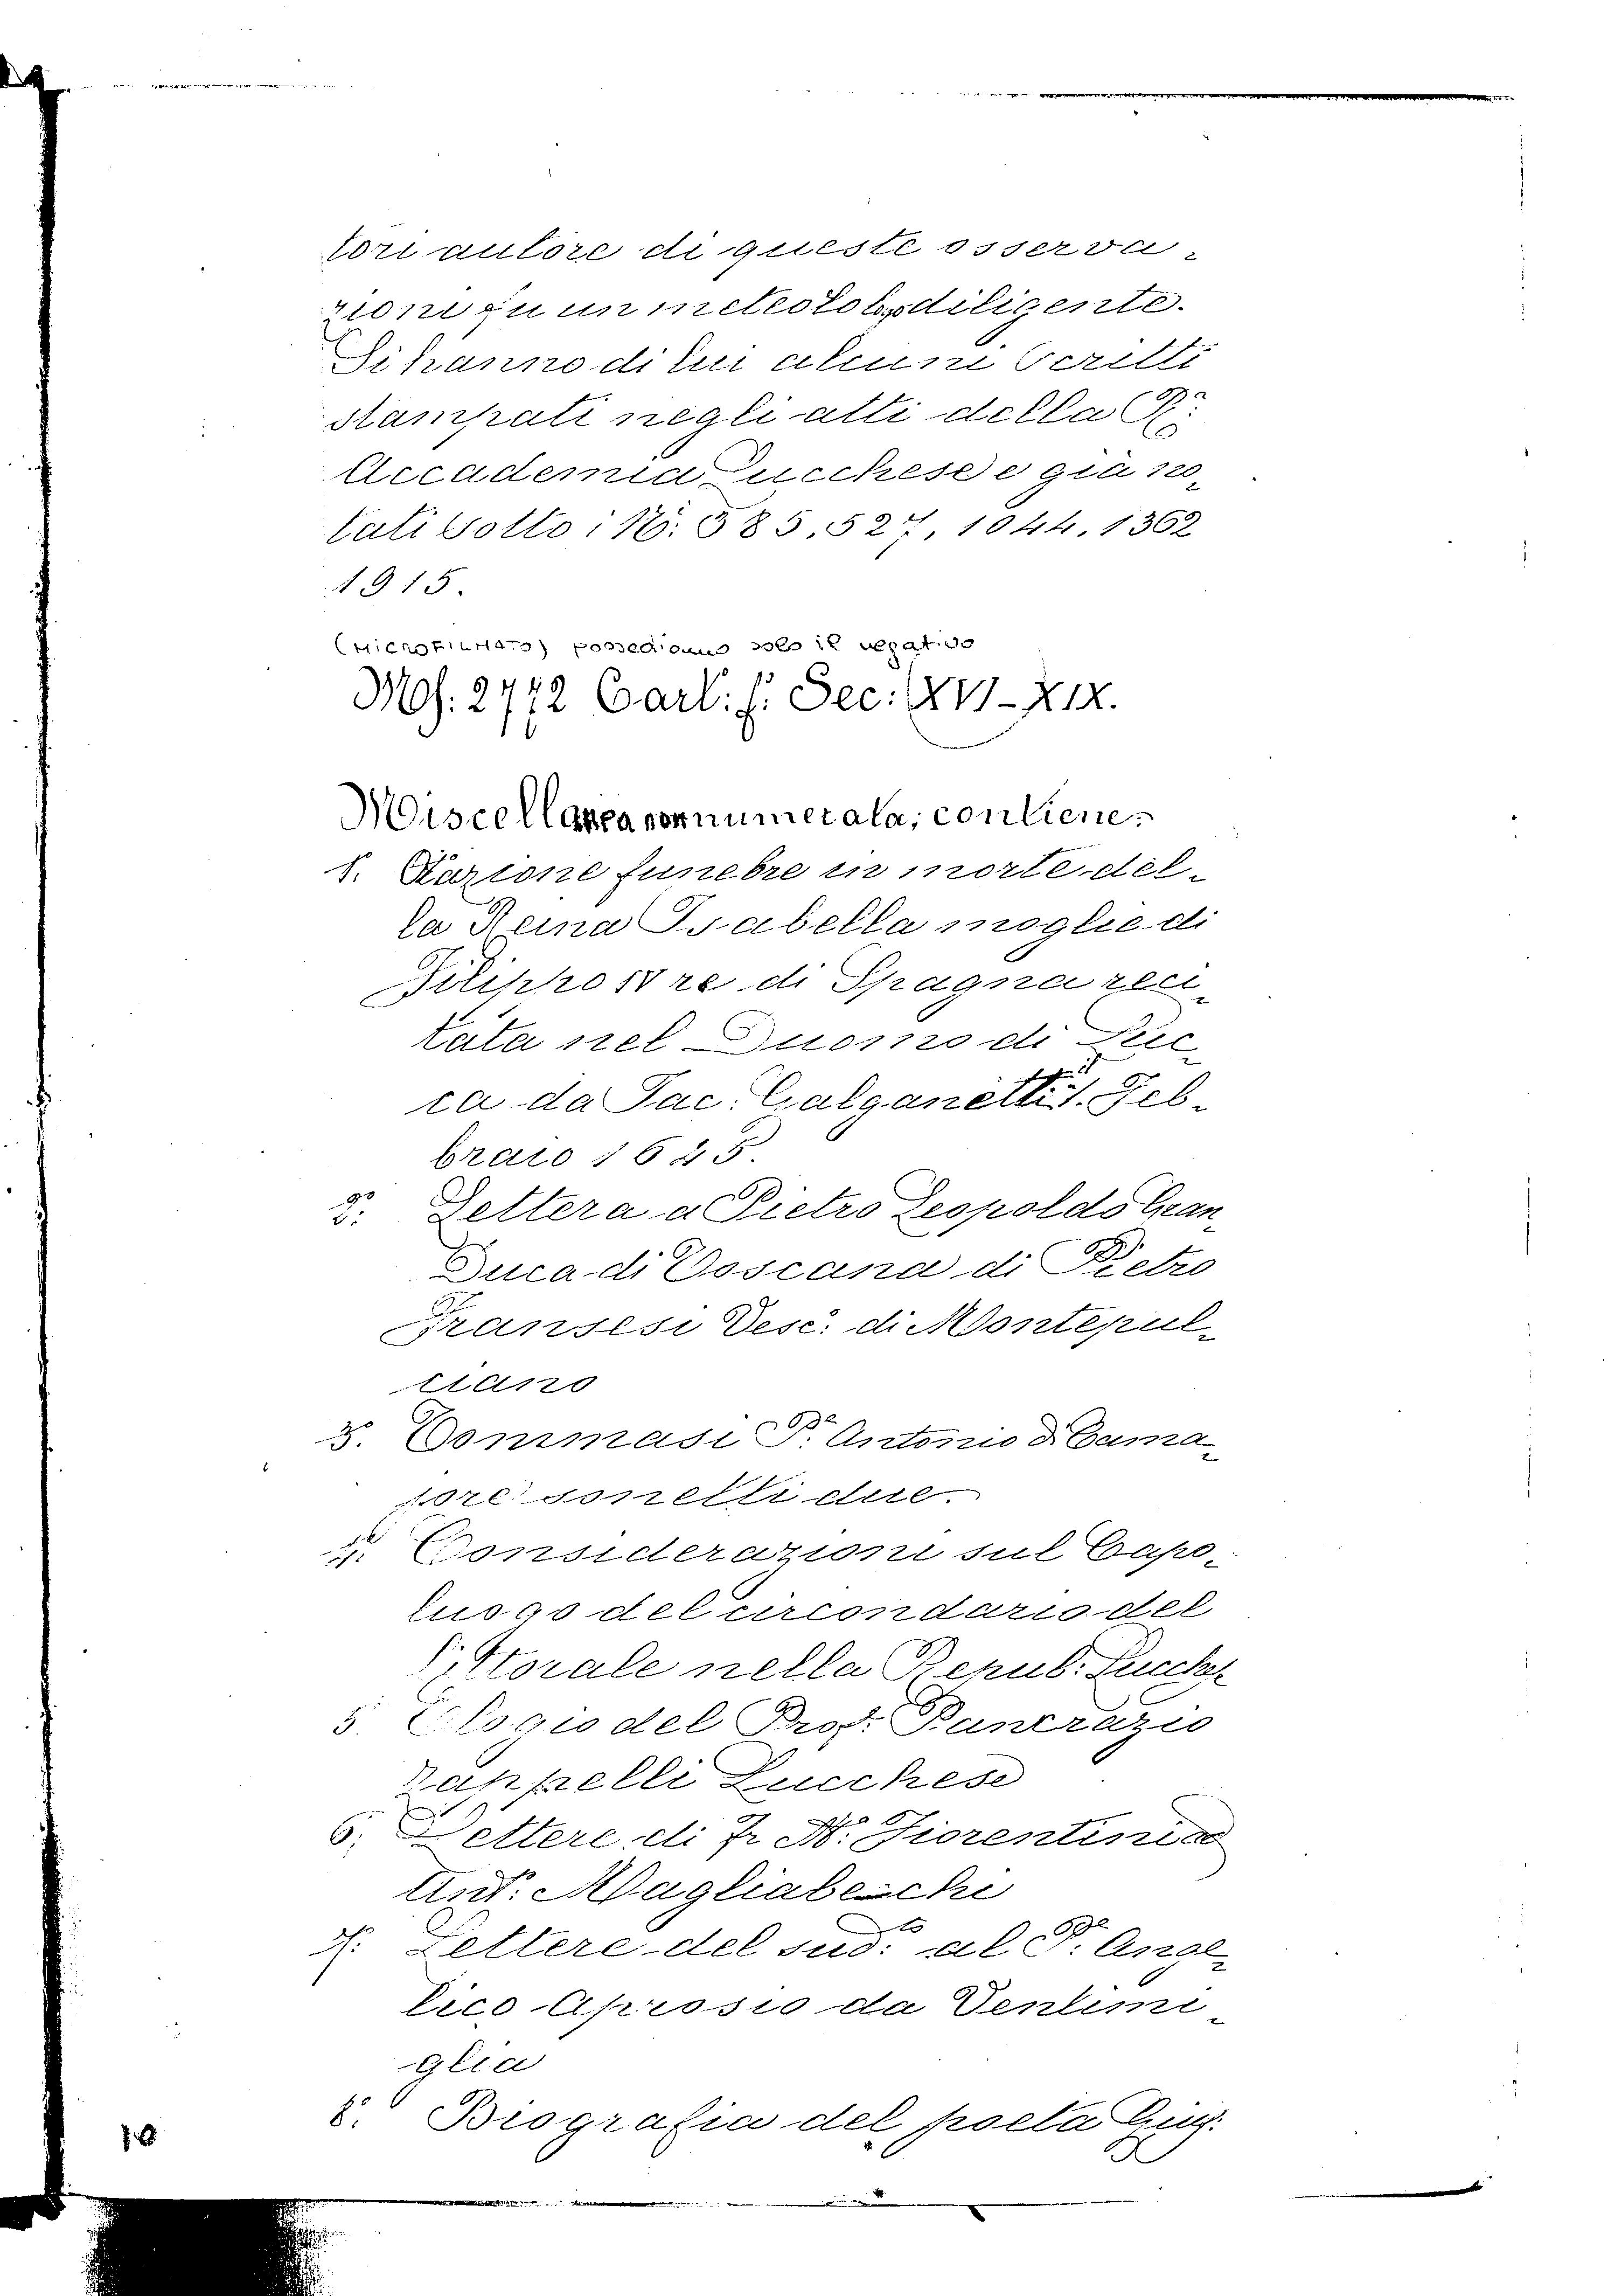 tori autore di queste osserva-
zioni fu un meteolobo diligente.
Si hanno di lui alcuni Scritti
stampati negli atti della R.
Accademia Lucchese e già no-
tati sotto i N. 585, 527, 1044, 1362
1915.
(MICROFILMATO) possediamo solo il negativo
Ms. 2712 Cart: f: Sec: XVI-XIX.
Miscellanea non numerata; contiene.
1. Orazione funebre in morte del-
la Reina Isabella moglie di
Filippo IV re di Spagna reci-
tata nel Duomo di Luc-
ca da Jac. Galganetti il 1. Feb-
braio 1645.
2. Lettera a Pietro Leopoldo Gran
Duca di Toscana di Pietro
Fransesi Vesc: di Montepul-
ciano
3. Tommasi P.e Antonio d. Cama-
jore sonetti due.
4. Considerazioni sul Capo-
luogo del circondario del
Littorale nella Repub: Lucch
5. Elogio del Prof. Pancrazio
Zappelli Lucchese
6. Lettere di Fr M. Fiorentini ad
Ant. Magliabecchi
7. Lettere del sud.to al P.e Ange-
lico Aprosio da Ventimi-
glia
8. Biografia del poeta Gius.
10